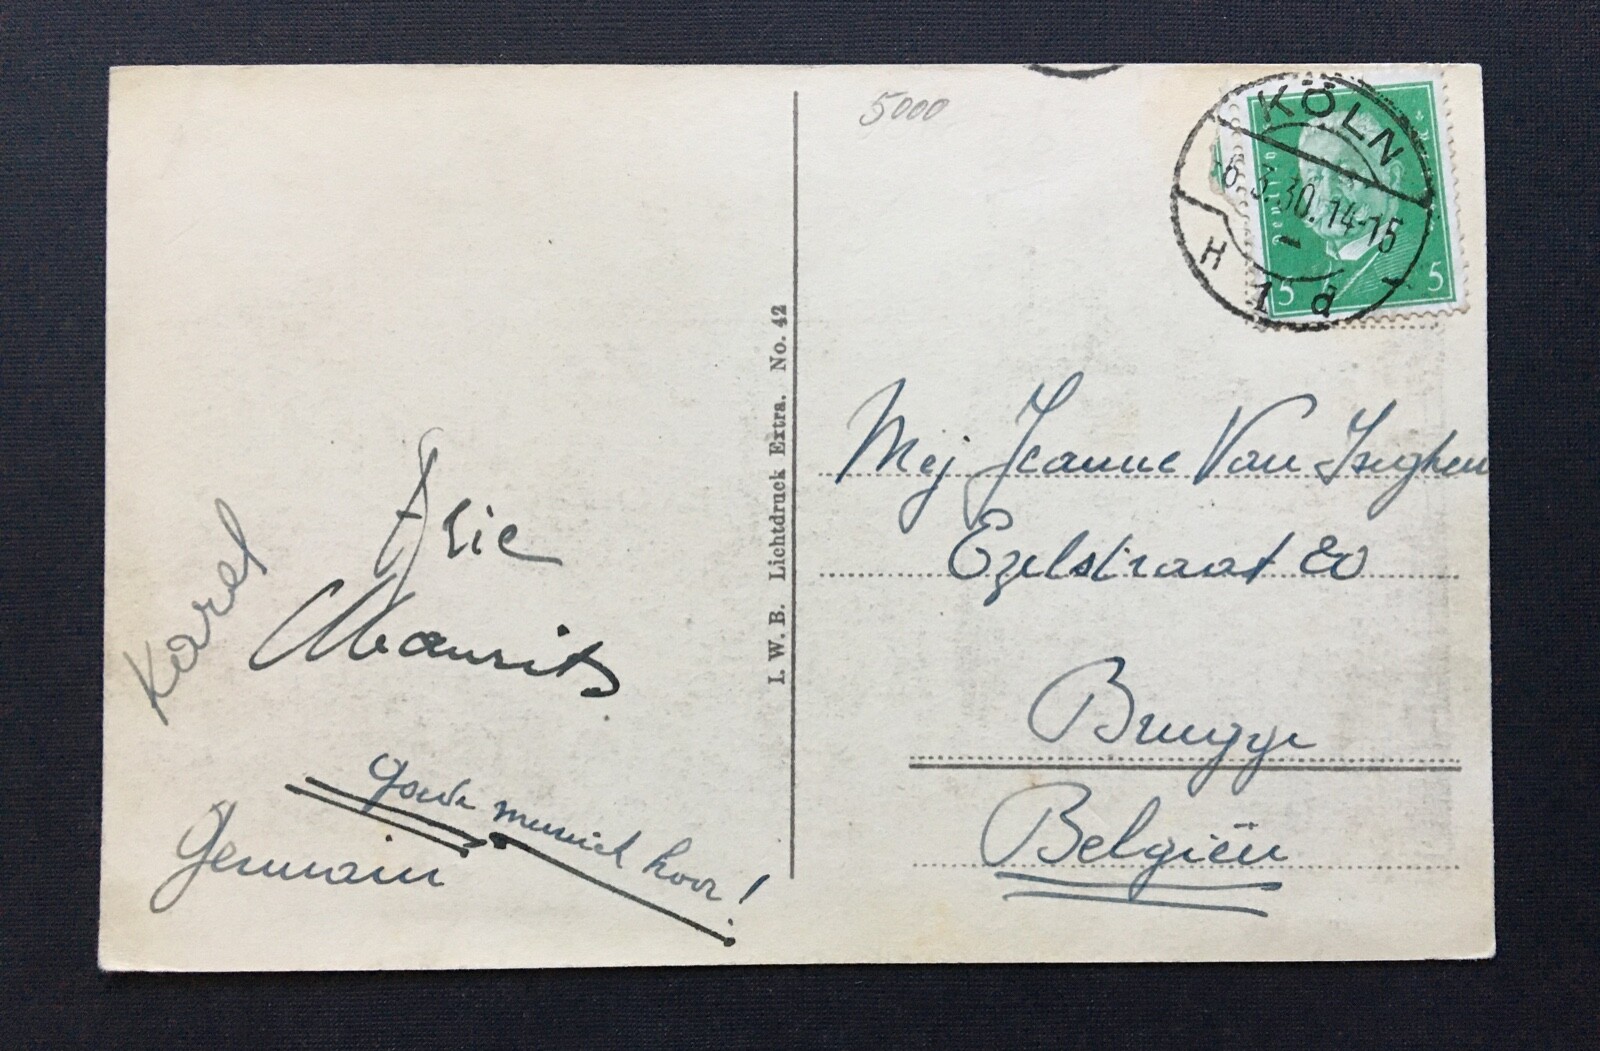 5000
KÖLN
6.3.30.14-15
H 1 a
5 5
I. W. B. Lichtdruck Extra. No. 42
Karel
Maurits
goede muziek hoor!
Germain
Mej Jeanne Van Iseghem
Ezelstraat 80
Brugge
Belgiën